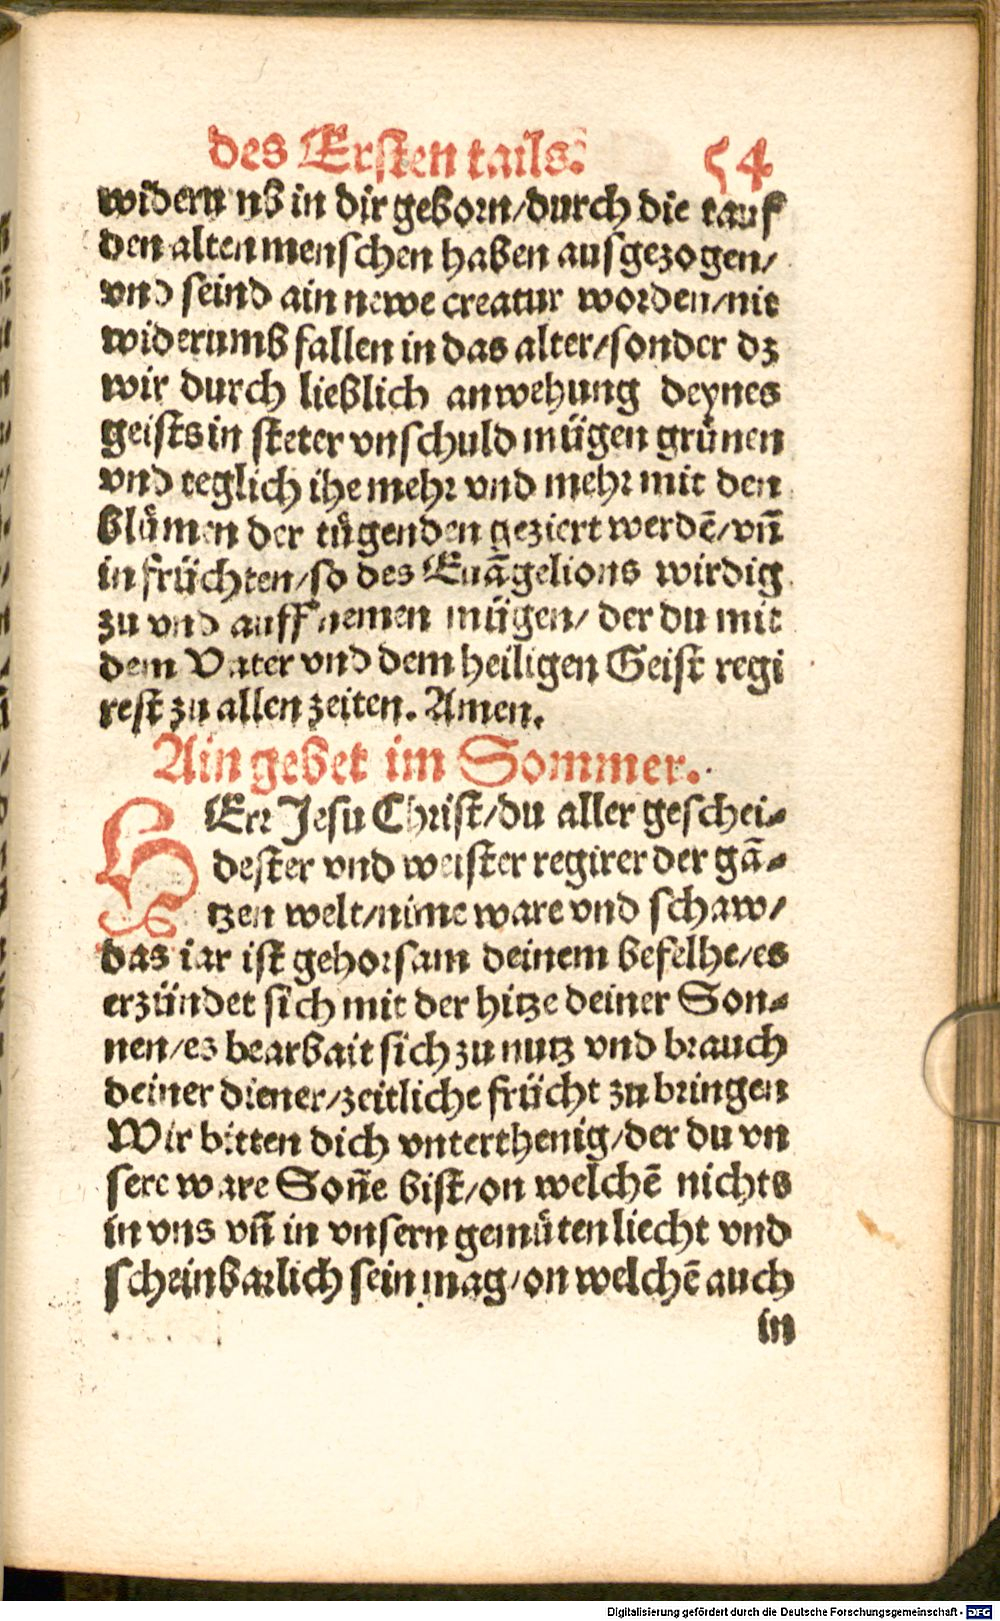 des Ersten tails. 54
widerumb in dir geborn/durch die tauf
den alten menschen haben ausgezogen/
vnd seind ain newe creatur worden/nit
widerumb fallen in das alter/sonder dz
wir durch lieblich anwehung deynes
geists in steter vnschuld mügen grünen
vnd teglich ihe mehr vnd mehr mit den
blůmen der tůgenden geziert werdē/vñ
in früchten/so des Euāgelions wirdig
zu vnd auff nemen mügen/ der du mit
dem Vater vnd dem heiligen Geist regi
rest zu allen zeiten. Amen.
Ain gebet im Sommer.
HErr Jesu Christ/du aller geschei-
dester vnd weister regirer der gā-
tzen welt/nime ware vnd schaw/
das iar ist gehorsam deinem befelhe/es
erzündet sich mit der hitze deiner Son-
nen/es bearbait sich zu nutz vnd brauch
deiner diener/zeitliche frücht zu bringen
Wir bitten dich vnterthenig/der du vn
sere ware Soñe bist/on welchē nichts
in vns vñ in vnsern gemůten liecht vnd
scheinbarlich sein mag/on welchē auch
in
Digitalisierung gefördert durch die Deutsche Forschungsgemeinschaft - DFG